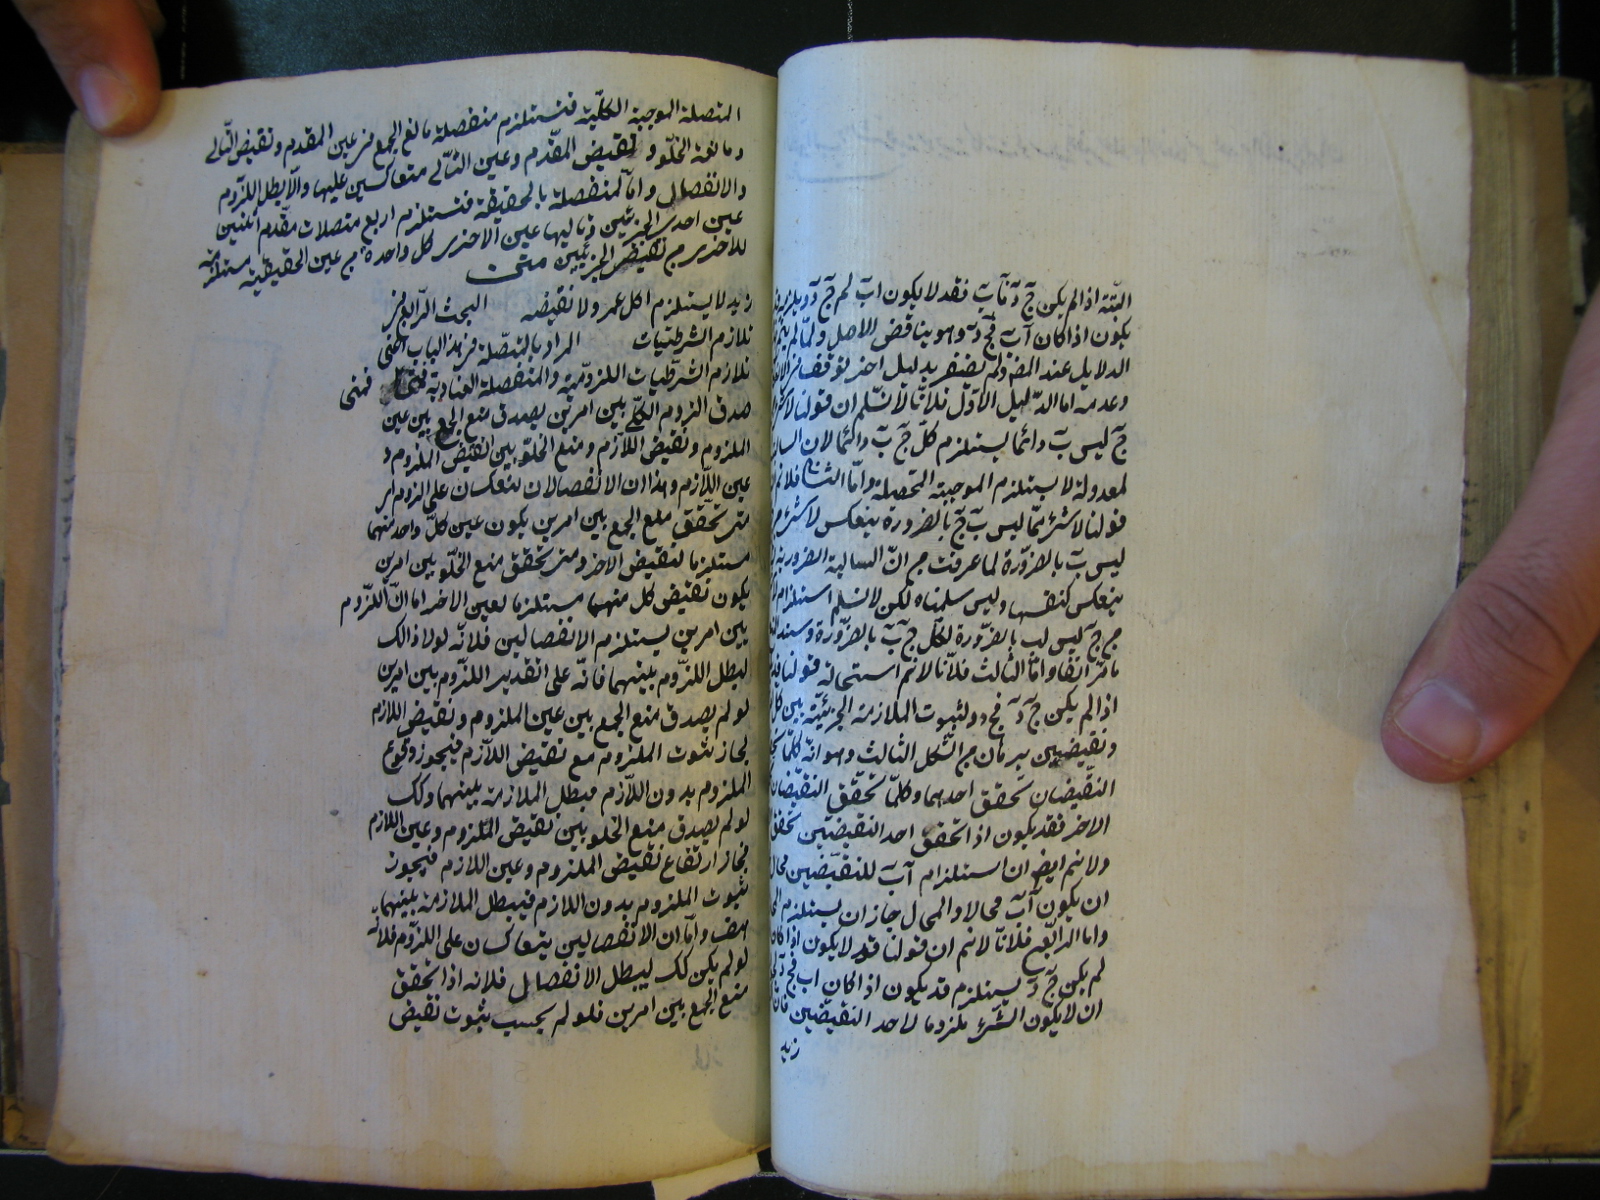 البتة اذا لم يكن ج د فاب فقد لا يكون اب لم ج د ويلزمه
يكون اذا كان آب فج د وهو يناقض الاصل ولما لم يتم
الدلايل عند المص ولم يظفر بدليل اخر توقف في الانعكاس
وعدمه اما الدليل الاول فلانا لا نسلم ان قولنا
ج ليس ب دائما يستلزم كل ج ب دائما لان السالبة
لمعدولة لا يستلزم الموجبة المحصلة واما الثاني فلانم
قولنا لا شئ مما ليس ب ج بالضرورة ينعكس لا شئ من
ليس ب بالضرورة لما عرفت من ان السالبة الضرورية
ينعكس كنفسها ولئن سلمناه لكن لا نسلم استلزام
من ج ليس ب بالضرورة لكل ج ب بالضرورة وسند
ما مر انفا واما الثالث فلانا لا نم استحالة قولنا قد
اذا لم يكن ج د فج د لثبوت الملازمة الجزئية بين كل
ونقيضين ببرهان من الشكل الثالث وهو انه كلما
النقيضان تحقق احدهما وكلما تحقق النقيضان
الاخر فقد يكون اذا تحقق احد النقيضين تحقق
ولا نم ايضا ان استلزام آب للنقيضين محال
ان يكون آب محالا والمحال جاز ان يستلزم
واما الرابع فلانا لا نم ان قولنا قد لا يكون اذا كان
لم يكن ج د يستلزم قد يكون اذا كان اب فج د
ان لا يكون الشئ ملزوما لاحد النقيضين فان
زيد
المتصلة الموجبة الكلية فتستلزم منفصلة مانع الجمع من عين المقدم ونقيض التالي
ومانعة الخلو نقيض المقدم وعين التالي متعاكسين عليها والا بطل اللزوم
والانفصال واما المنفصلة بالحقيقة فتستلزم اربع متصلات مقدم اثنين
عين احدى الجزئين وتاليها عين الاخرى كل واحدة من عين الحقيقية مستلزمة
للاخرى من نقيض الجزئين متن
زيد لا يستلزم اكل عمرو ولا نقيضه البحث الرابع في
تلازم الشرطيات المراد بالمتصلة في هذا الباب اعنى
تلازم الشرطيات اللزومية والمنفصلة العنادية فمتى
صدق اللزوم الكلي بين امرين يصدق منع الجمع بين عين
الملزوم ونقيض اللازم ومنع الخلو بين نقيض الملزوم و
عين اللازم وهذان الانفصالان ينعكسان على اللزوم اى
متى تحقق منع الجمع بين امرين يكون عين كل واحد منهما
مستلزما لنقيض الاخر ومتى تحقق منع الخلو بين امرين
يكون نقيض كل منهما مستلزما لعين الاخر اما ان اللزوم
بين امرين يستلزم الانفصالين فلانه لولا ذالك
لبطل اللزوم بينهما فانه على تقدير اللزوم بين امرين
لو لم يصدق منع الجمع بين عين الملزوم ونقيض اللازم
لجاز ثبوت الملزوم مع نقيض اللازم فيجوز وقوع
الملزوم بدون اللازم فبطل الملازمة بينهما وكك
لو لم يصدق منع الخلو بين نقيض الملزوم وعين اللازم
لجاز ارتفاع نقيض الملزوم وعين اللازم فيجوز
ثبوت الملزوم بدون اللازم فيبطل الملازمة بينهما
هف واما ان الانفصالين يتعاكسان على اللزوم فلانه
لو لم يكن كك ليبطل الانفصال فلانه اذا تحقق
منع الجمع بين امرين فلو لم يجب ثبوت نقيض